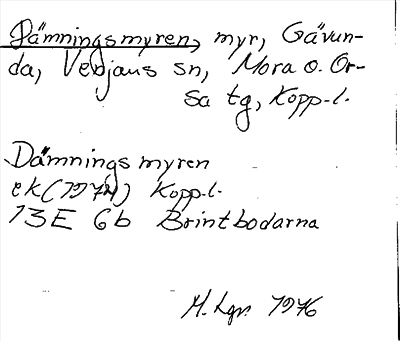 Dämningsmyren, myr, Gävun-
da, Venjans sn, Mora o. Or-
sa tg, Kopp.l.
Dämningsmyren
ek (1974) Kopp.l.
13E 6b Brintbodarna
M. Lgr. 1976